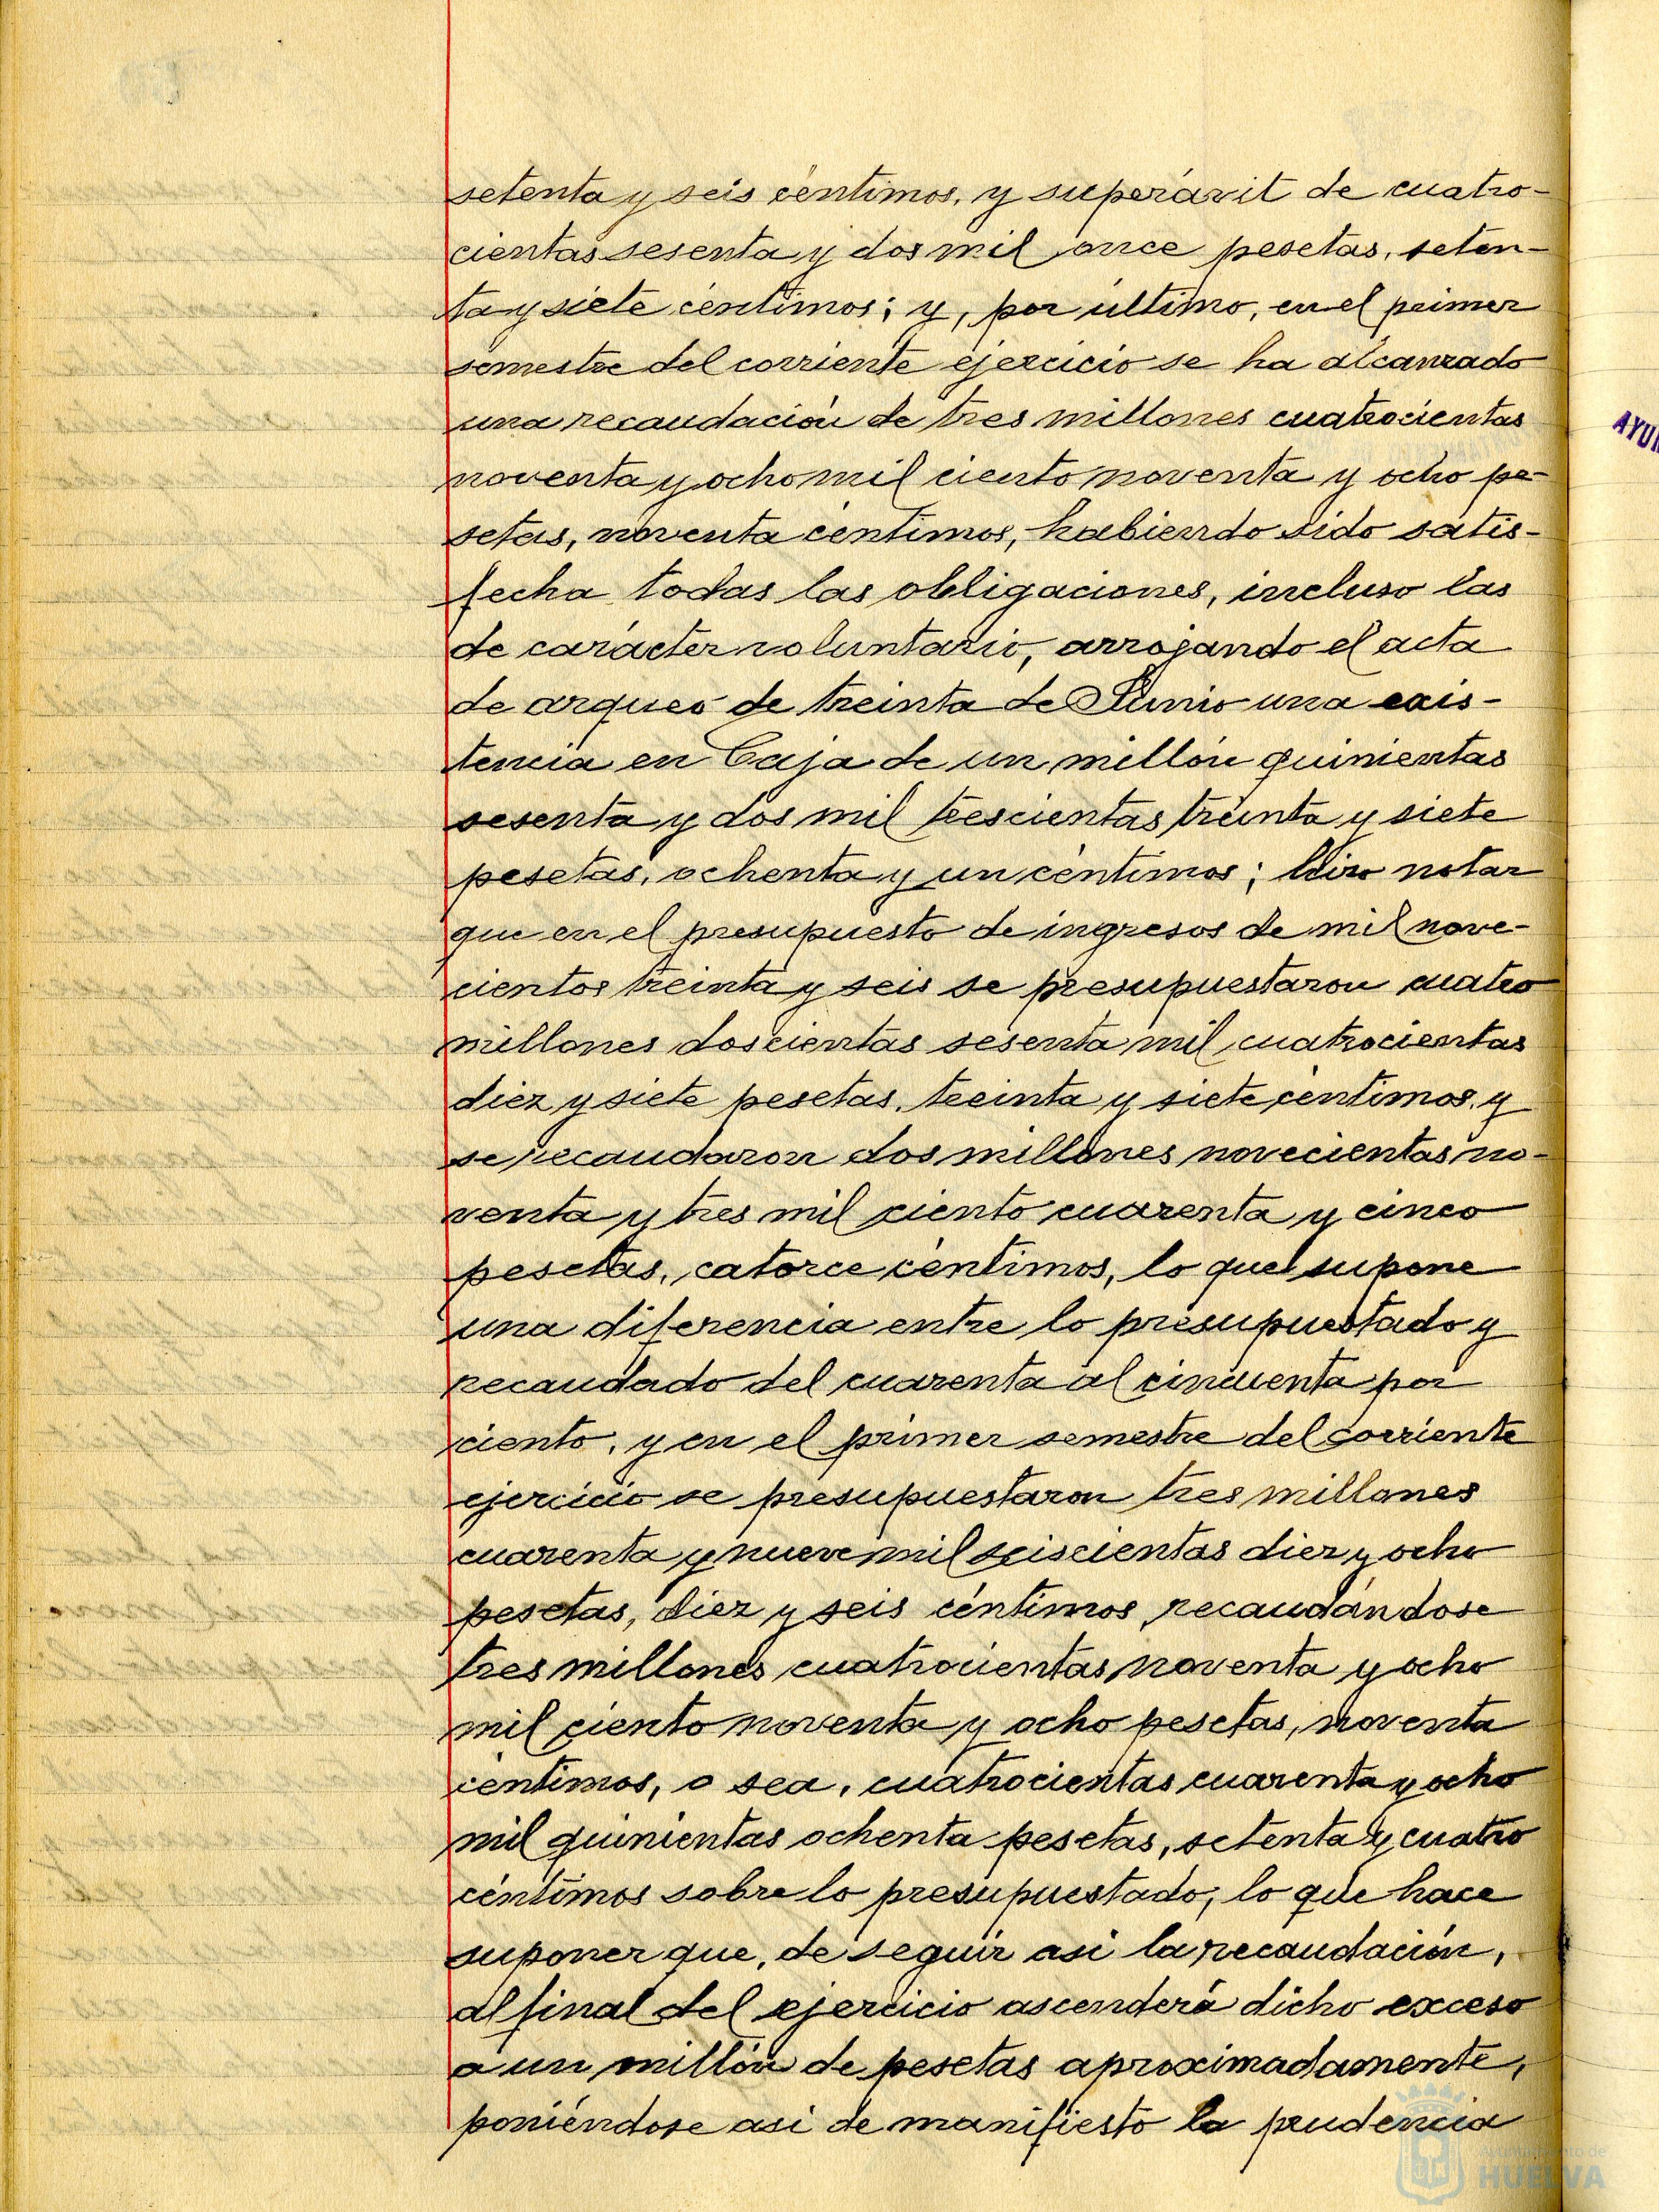 setenta y seis céntimos, y superávit de cuatro-
cientas sesenta y dos mil once pesetas, seten-
ta y siete céntimos; y, por último, en el primer
semestre del corriente ejercicio se ha alcanzado
una recaudación de tres millones cuatrocientas
noventa y ocho mil ciento noventa y ocho pe-
setas, noventa céntimos, habiendo sido satis-
fecha todas las obligaciones, incluso las
de carácter voluntario, arrojando el acta
de arqueo de treinta de Junio una exis-
tencia en Caja de un millón quinientas
sesenta y dos mil trescientas treinta y siete
pesetas, ochenta y un céntimos; hizo notar
que en el presupuesto de ingresos de mil nove-
cientos treinta y seis se presupuestaron cuatro
millones doscientas sesenta mil cuatrocientas
diez y siete pesetas, treinta y siete céntimos, y
se recaudaron dos millones novecientas no-
venta y tres mil ciento cuarenta y cinco
pesetas, catorce céntimos, lo que supone
una diferencia entre lo presupuestado y
recaudado del cuarenta al cincuenta por
ciento, y en el primer semestre del corriente
ejercicio se presupuestaron tres millones
cuarenta y nueve mil seiscientas diez y ocho
pesetas, diez y seis céntimos, recaudándose
tres millones cuatrocientas noventa y ocho
mil ciento noventa y ocho pesetas, noventa
céntimos, o sea, cuatrocientas cuarenta y ocho
mil quinientas ochenta pesetas, setenta y cuatro
céntimos sobre lo presupuestado, lo que hace
suponer que, de seguir asi la recaudación,
al final del ejercicio ascenderá dicho exceso
a un millón de pesetas aproximadamente,
poniéndose asi de manifiesto la prudencia
AYUN
Ayuntamiento de
HUELVA